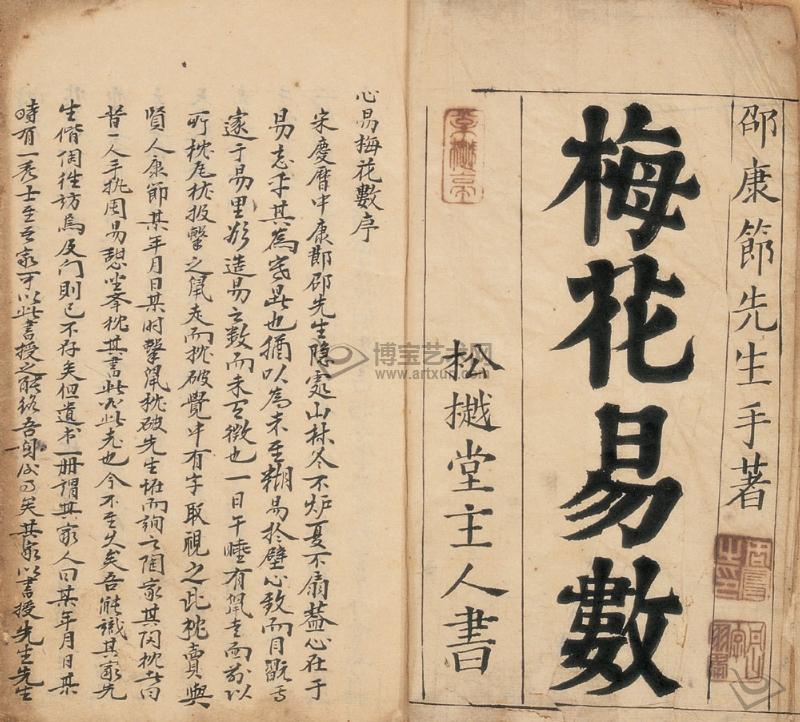 邵康節先生手著
梅花易數
松樾堂主人書
心易梅花數序
宋慶曆中康節邵先生隐處山林冬不炉夏不扇蓋心在于
易忘乎其為寒暑也猶以為未至糊易於壁心致而目翫焉
遂于易里欲造易之数而未有徴也一日午睡有鼠走而前以
所枕瓦枕投擊之鼠走而枕破覺中有字取視之此枕賣與
賢人康節某年月日某时擊鼠枕破先生怪而詢之陶家其陶枕者曰
昔一人手執周易憩坐举枕其書此必此老也今不至久矣吾能識其家先
生偕陶往訪焉及門則已不存矣但遺书一册謂其家人曰某年月日某
時有一秀士至吾家可以此書授之能終吾身後事矣其家以書授先生先生
博宝艺术网
www.artxun.com